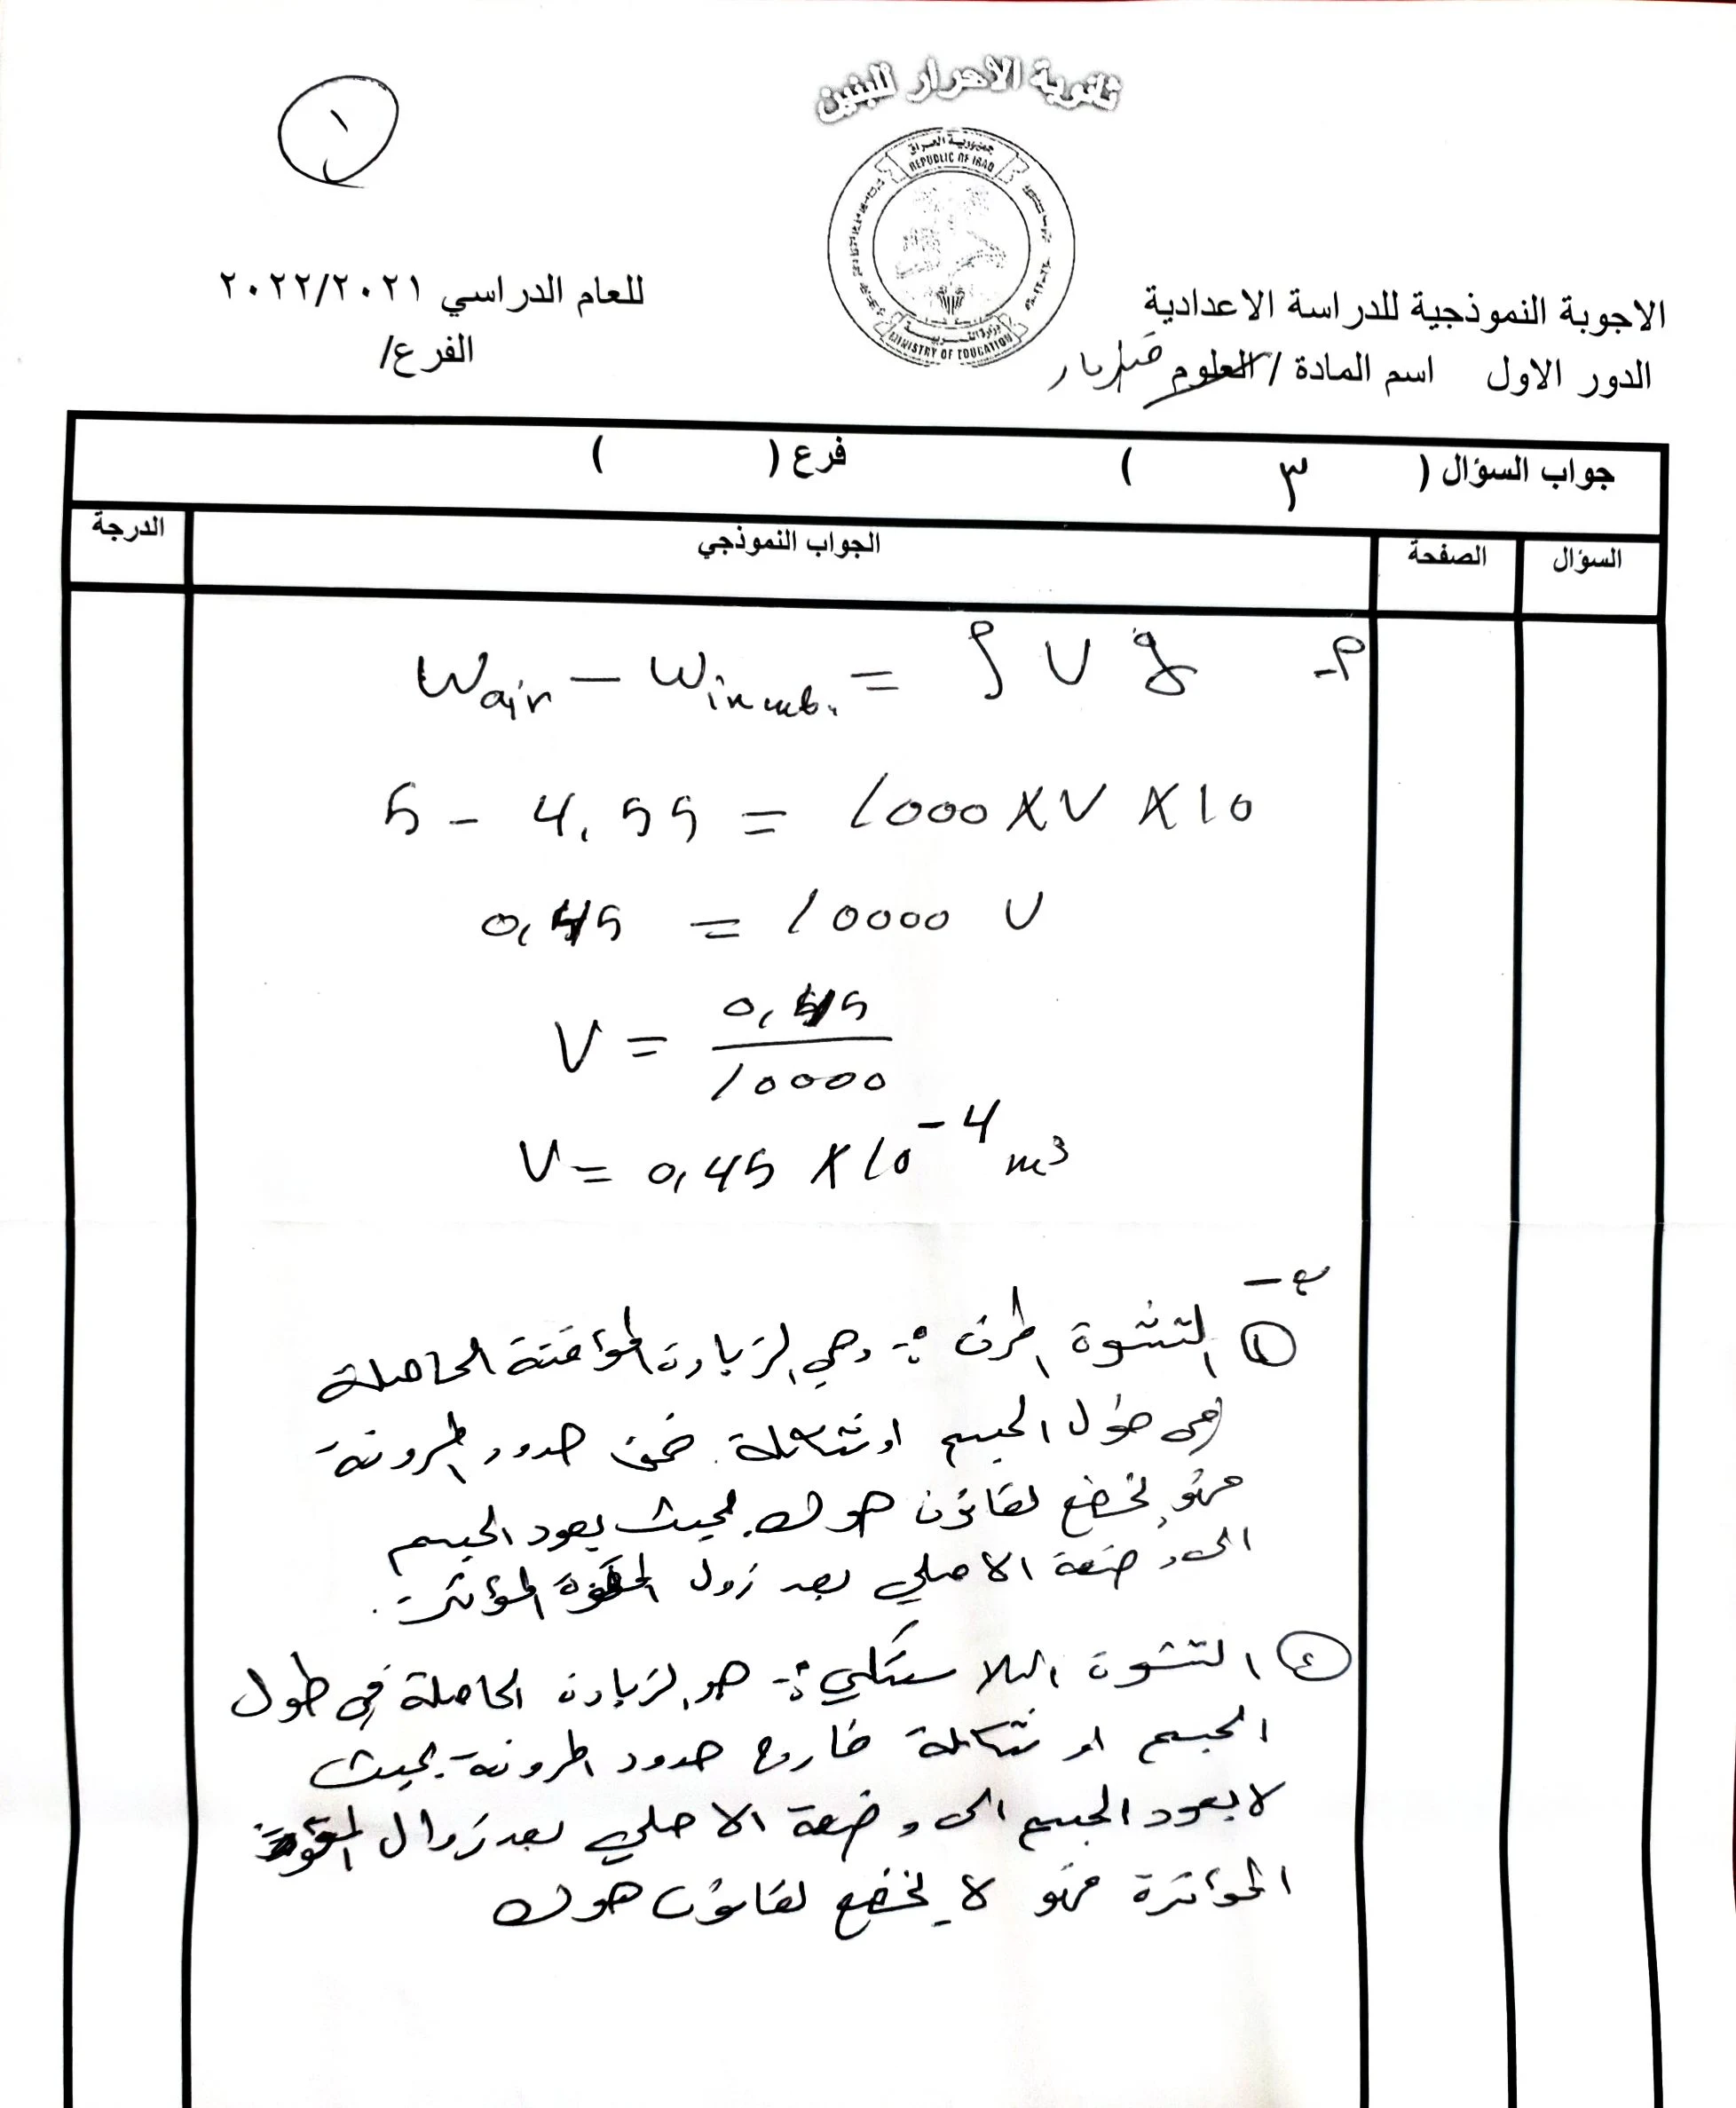 ١
ثانوية الاحرار للبنين
جمهورية العراق
REPUBLIC OF IRAQ
وزارة التربية
MINISTRY OF EDUCATION
الاجوبة النموذجية للدراسة الاعدادية
للعام الدراسي ٢٠٢٢/٢٠٢١
الدور الاول اسم المادة / العلوم فيزياء
الفرع/
جواب السؤال ( ٣ ) فرع ( )
السؤال الصفحة الجواب النموذجي الدرجة
أ-
W air - W in = ρ V g
5 - 4.55 = 1000 X V X 10
0,45 = 10000 V
V = 0,45 / 10000
V = 0,45 X 10⁻⁴ m³
ب-
① التشوة المرن :- وهي الزيادة المؤقتة الحاصلة
في طول الجسم او شكله ضمن حدود المرونة
فهو يخضع لقانون هوك بحيث يعود الجسم
الى وضعة الاصلي بعد زول القوة المؤثرة.
② التشوة البلاستكي :- هو الزيادة الحاصلة في طول
الجسم او شكلة خارج حدود المرونة بحيث
لا يعود الجسم الى وضعة الاصلي بعد زوال القوة
المؤثرة فهو لا يخضع لقانون هوك